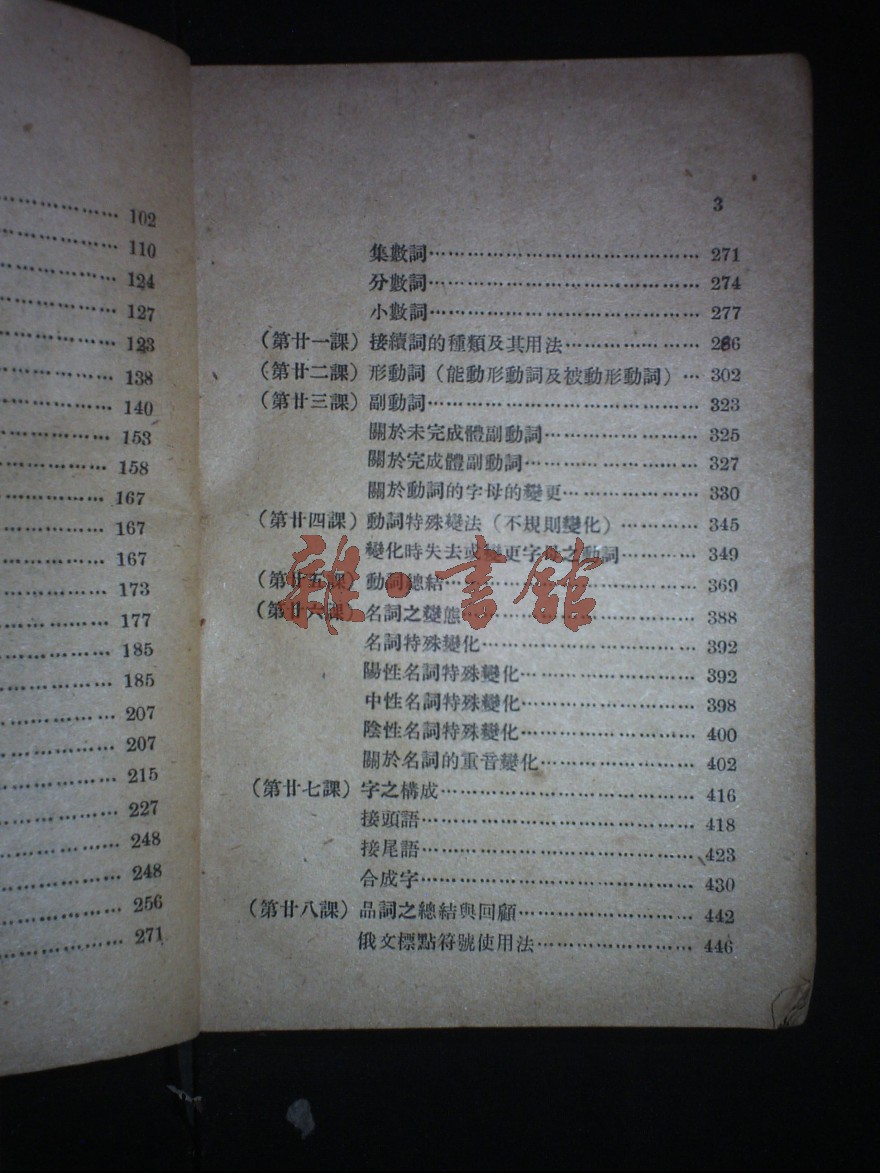 102
110
124
127
123
138
140
153
158
167
167
167
173
177
185
185
207
207
215
227
248
248
256
271
3
集數詞……………………………………271
分數詞……………………………………274
小數詞……………………………………277
(第廿一課)接續詞的種類及其用法…………………286
(第廿二課)形動詞(能動形動詞及被動形動詞)…302
(第廿三課)副動詞……………………………………323
關於未完成體副動詞……………………325
關於完成體副動詞………………………327
關於動詞的字母的變更…………………330
(第廿四課)動詞特殊變法(不規則變化)…………345
變化時失去或變更字母之動詞…………349
(第廿五課)動詞總結…………………………………369
(第廿六課)名詞之變態………………………………388
名詞特殊變化……………………………392
陽性名詞特殊變化………………………392
中性名詞特殊變化………………………398
陰性名詞特殊變化………………………400
關於名詞的重音變化……………………402
(第廿七課)字之構成…………………………………416
接頭語……………………………………418
接尾語……………………………………423
合成字……………………………………430
(第廿八課)品詞之總結與回顧………………………442
俄文標點符號使用法……………………446
雜·書館